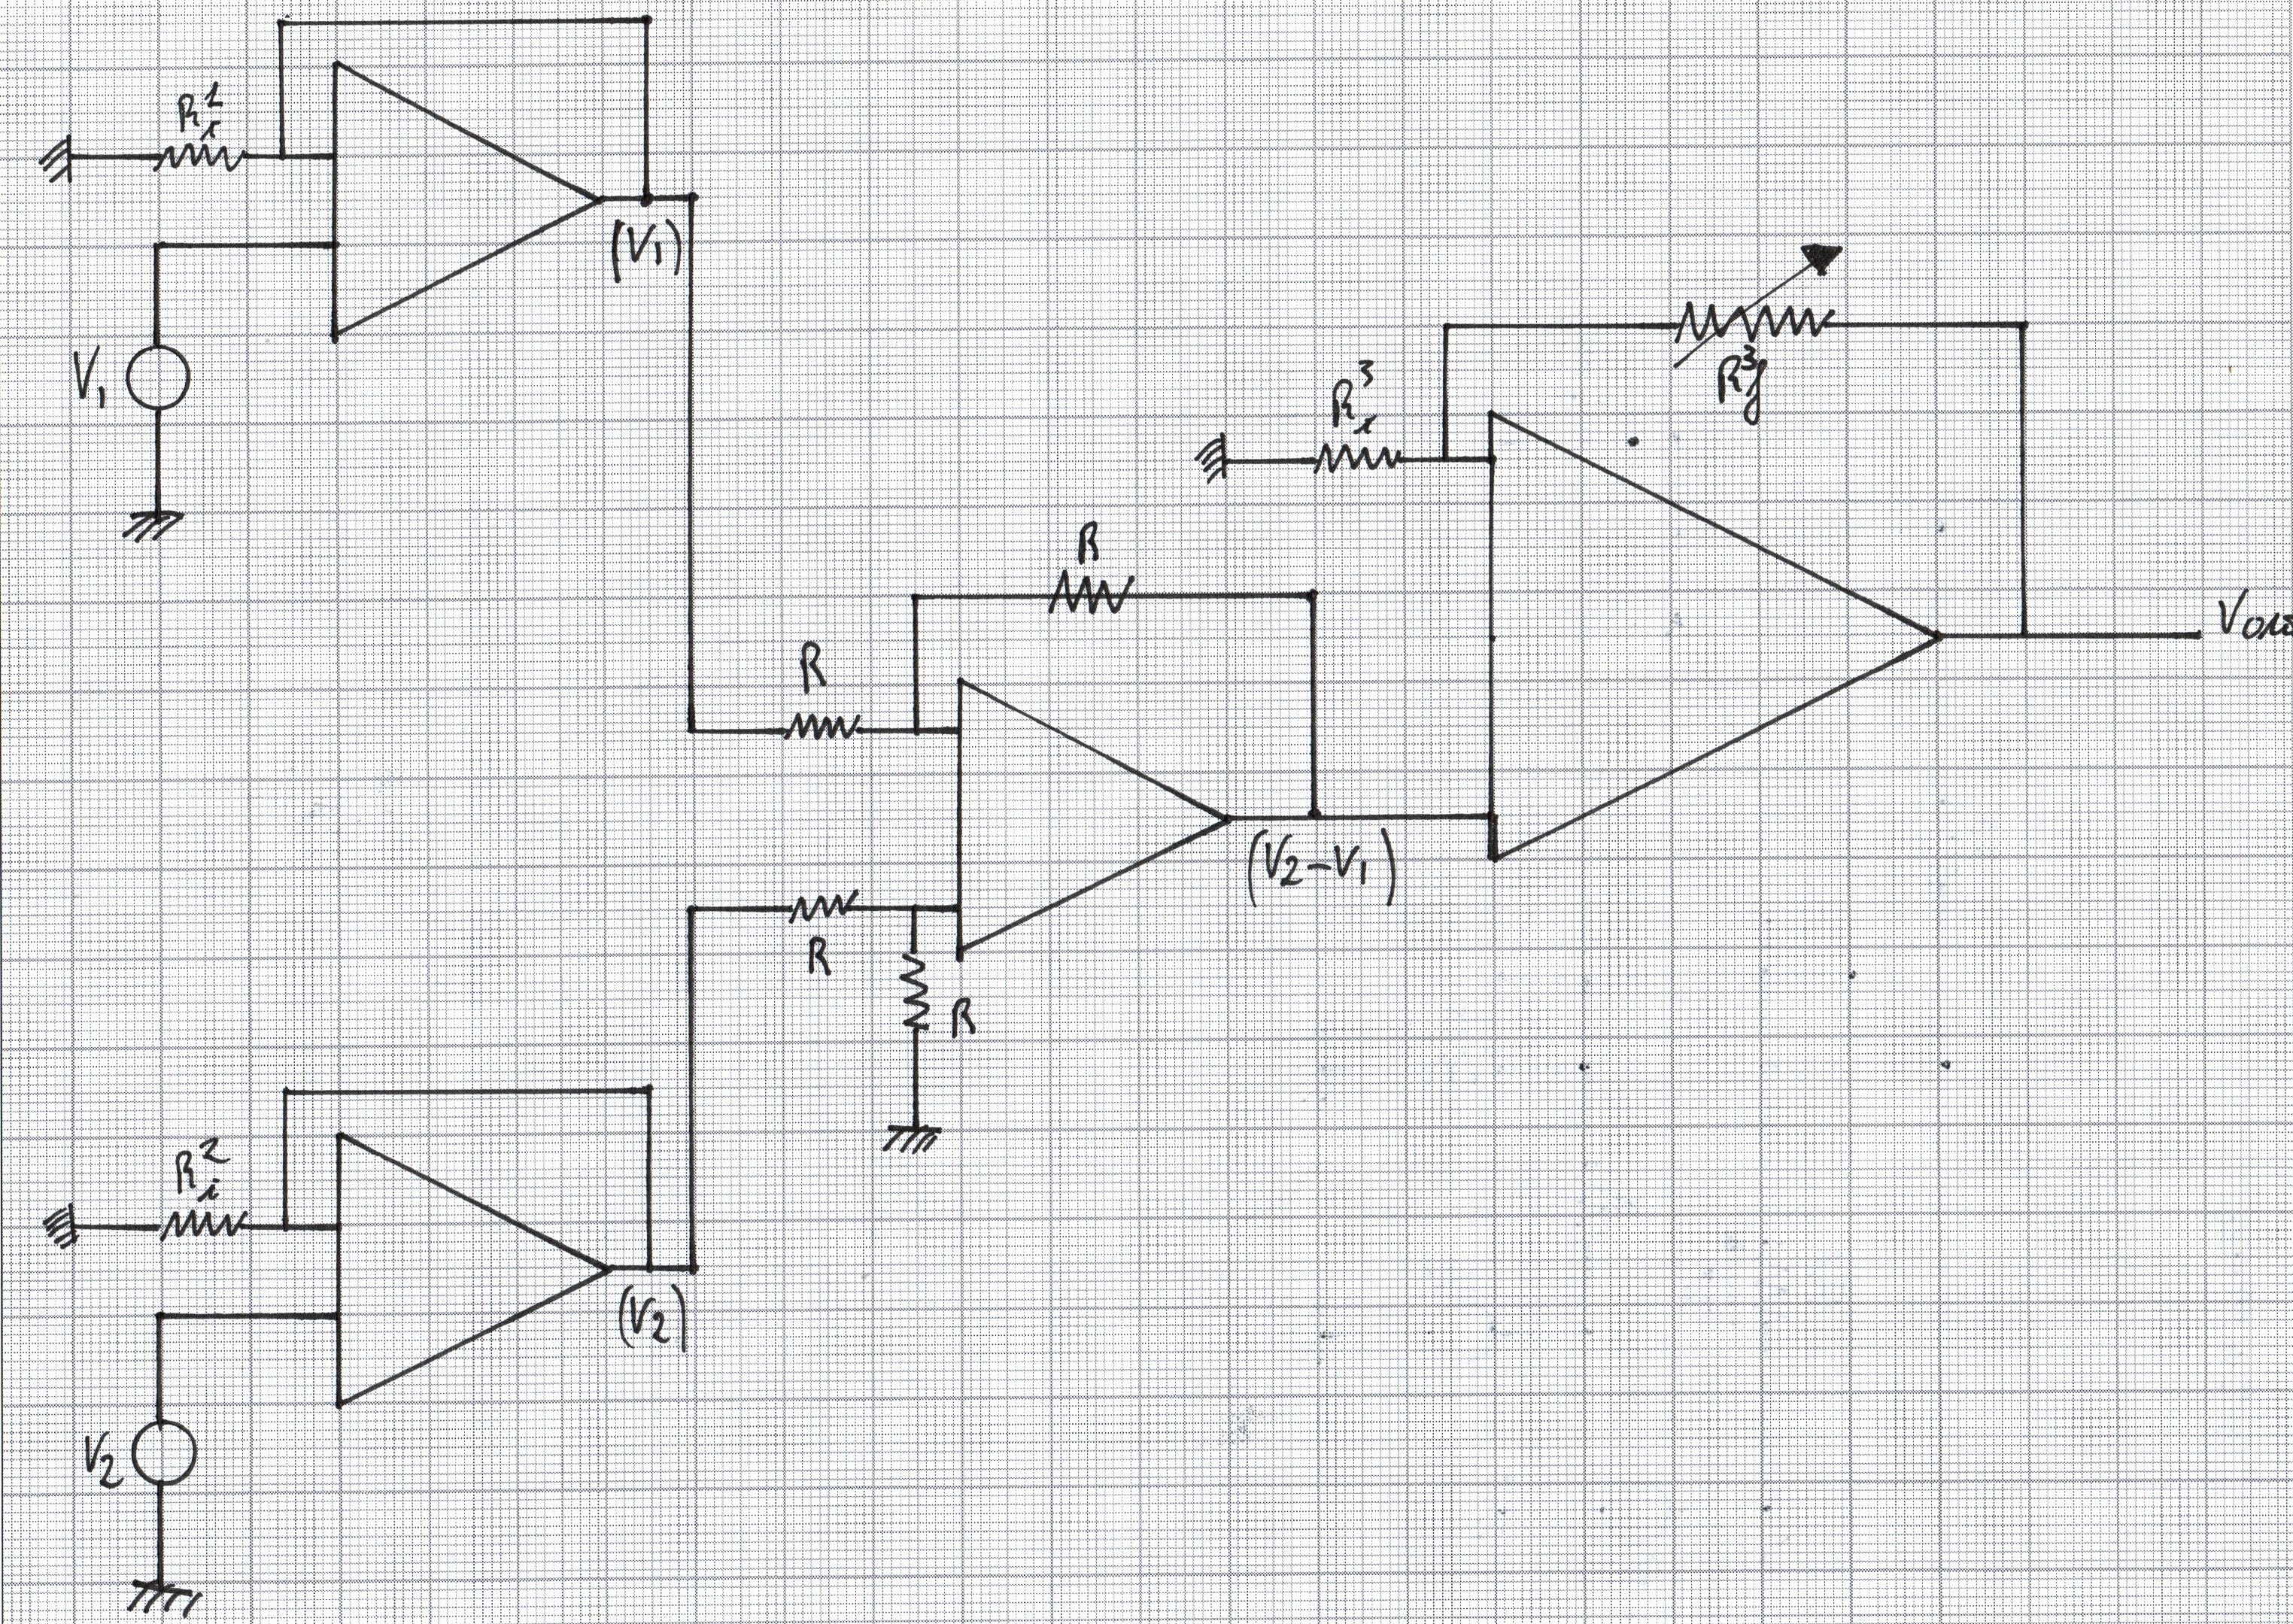 R_i^1
(V1)
V1
R_i^3
R_f^3
R
R
Vou
(V2-V1)
R
R
R_i^2
(V2)
V2